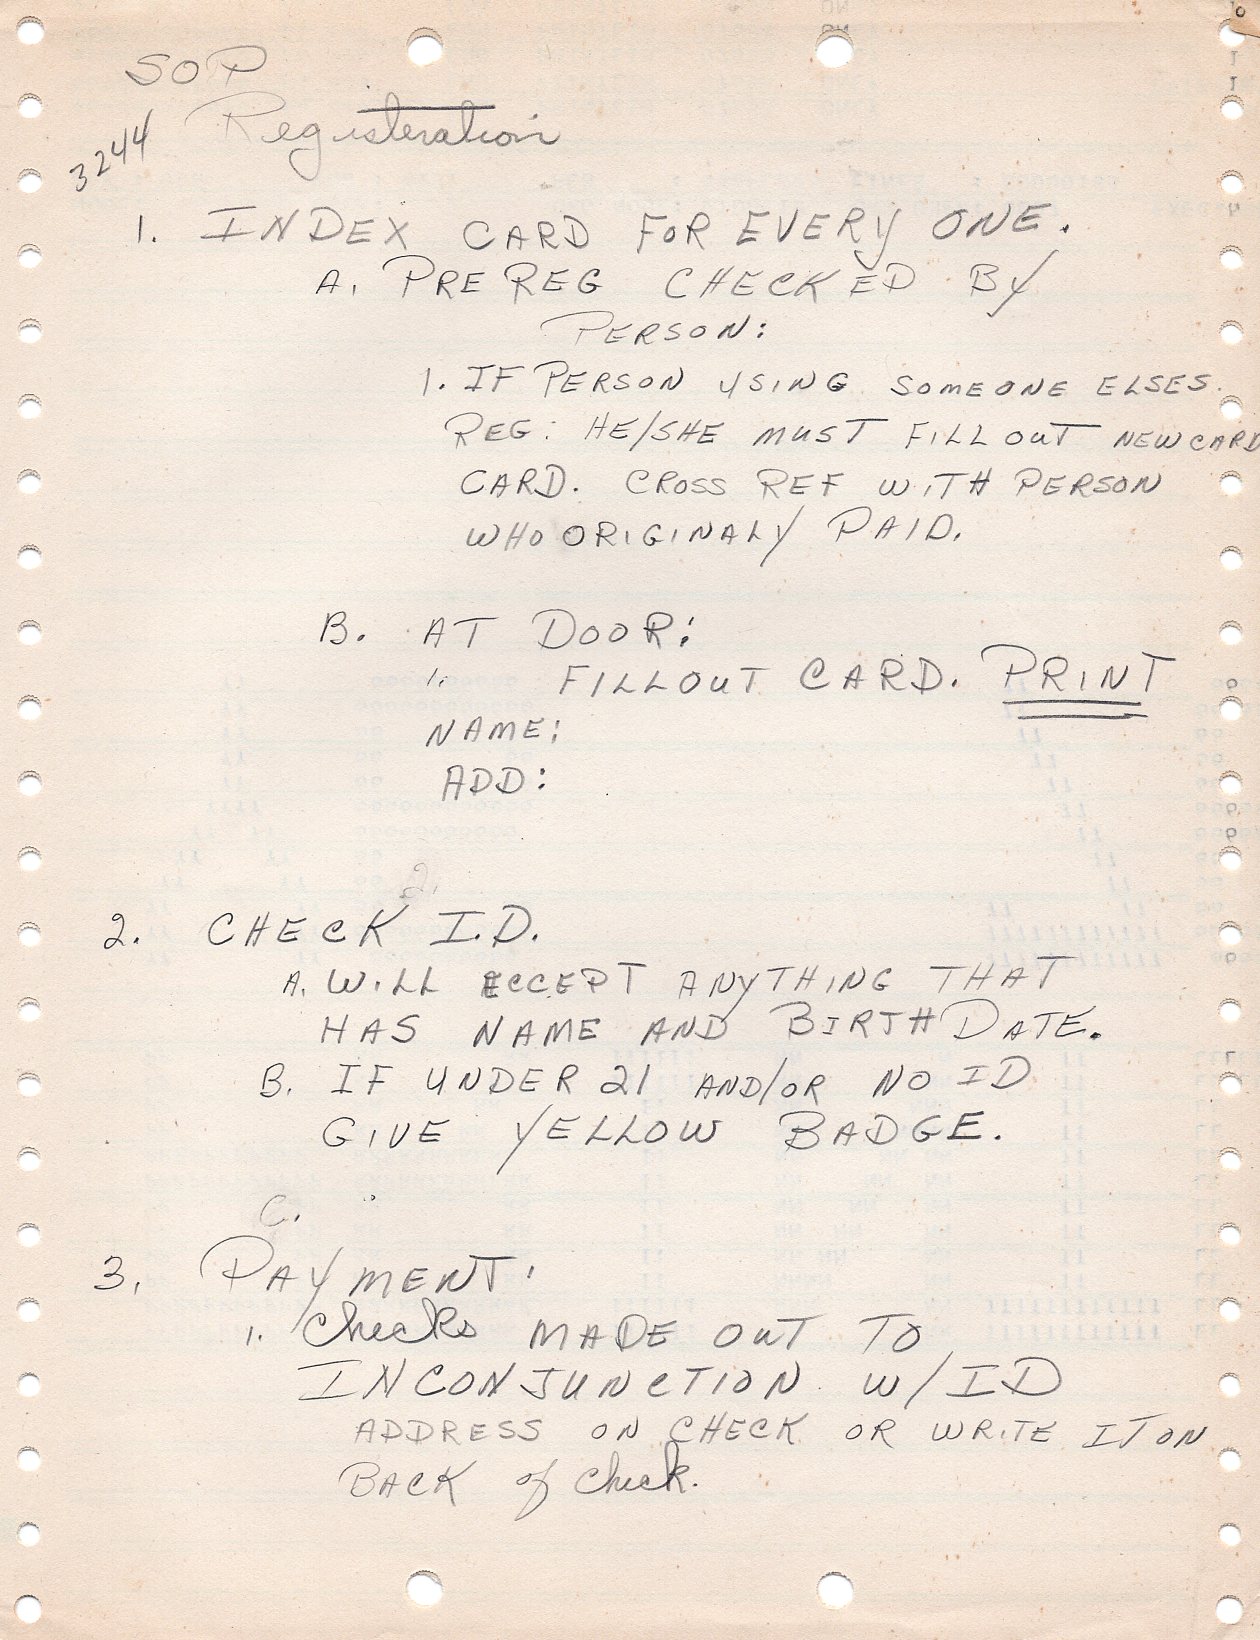 SOP
Registeration
3244
1. INDEX CARD FOR EVERY ONE.
A. PRE REG CHECKED BY
PERSON:
1. IF PERSON USING SOMEONE ELSES.
REG: HE/SHE MUST FILL OUT NEW CARD
CARD. CROSS REF WITH PERSON
WHO ORIGINALY PAID.
B. AT DOOR:
1. FILLOUT CARD. PRINT
NAME:
ADD:
2.
2. CHECK I.D.
A. WILL ACCEPT ANYTHING THAT
HAS NAME AND BIRTH DATE.
B. IF UNDER 21 AND/OR NO ID
GIVE YELLOW BADGE.
C.
3. PAYMENT:
1. Checks MADE OUT TO
INCONJUNCTION W/ID
ADDRESS ON CHECK OR WRITE IT ON
BACK of check.